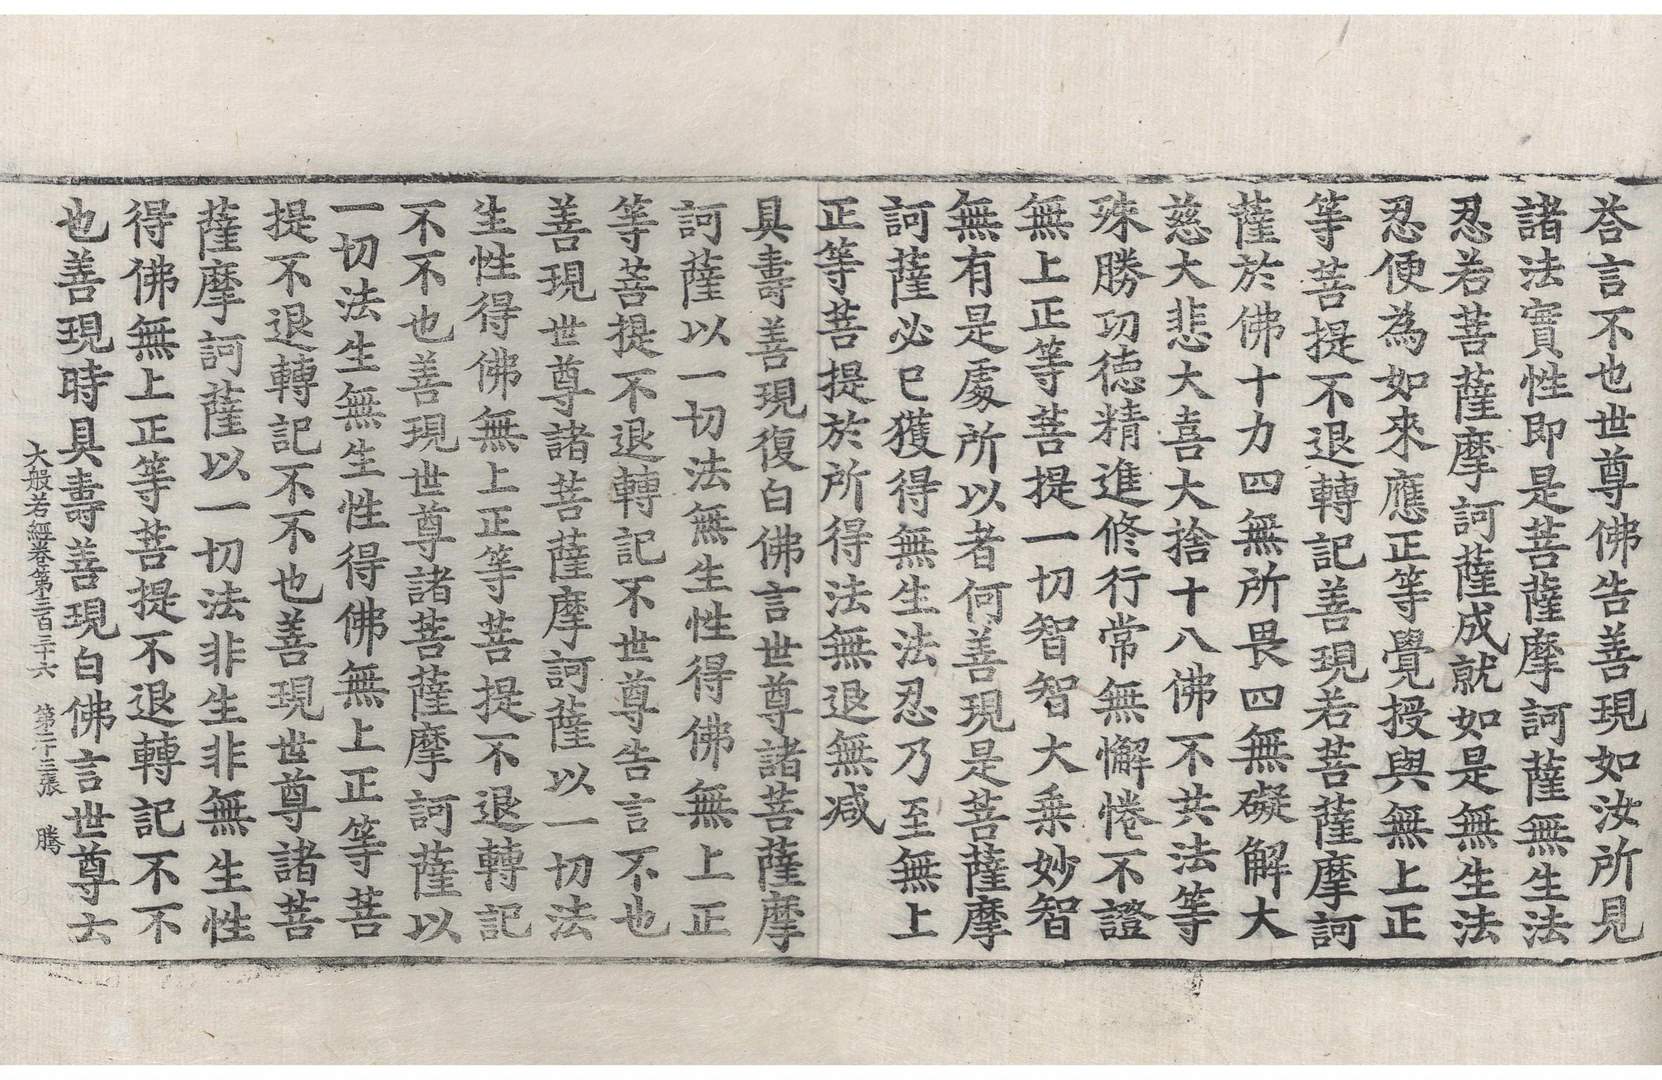 荅言不也世尊佛告善現如汝所見
諸法實性即是菩薩摩訶薩無生法
忍若菩薩摩訶薩成就如是無生法
忍便為如來應正等覺授與無上正
等菩提不退轉記善現若菩薩摩訶
薩於佛十力四無所畏四無礙解大
慈大悲大喜大捨十八佛不共法等
殊勝功德精進修行常無懈惓不證
無上正等菩提一切智智大乗妙智
無有是處所以者何善現是菩薩摩
訶薩必已獲得無生法忍乃至無上
正等菩提於所得法無退無减
具壽善現復白佛言世尊諸菩薩摩
訶薩以一切法無生性得佛無上正
等菩提不退轉記不世尊告言不也
善現世尊諸菩薩摩訶薩以一切法
生性得佛無上正等菩提不退轉記
不不也善現世尊諸菩薩摩訶薩以
一切法生無生性得佛無上正等菩
提不退轉記不不也善現世尊諸菩
薩摩訶薩以一切法非生非無生性
得佛無上正等菩提不退轉記不不
也善現時具壽善現白佛言世尊云
大般若經卷第三百三十六　第二十三張　騰